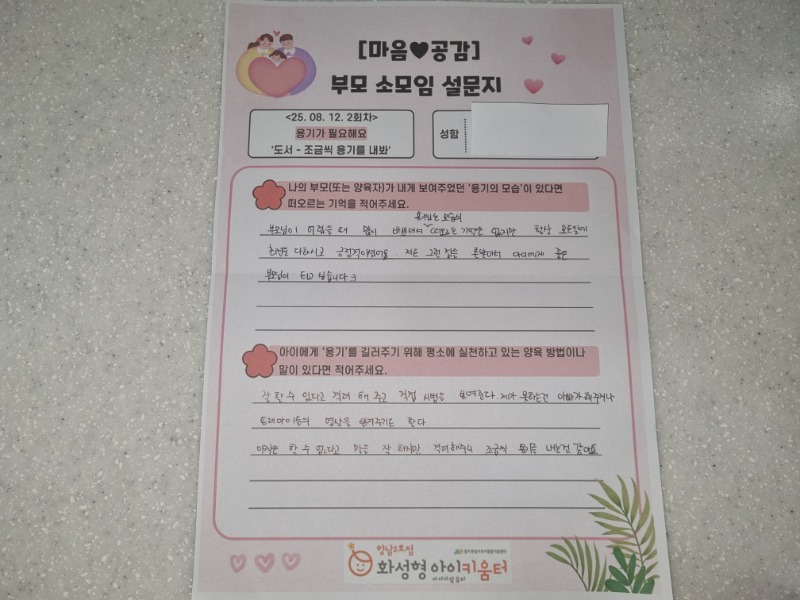 [마음♥공감]
부모 소모임 설문지
<25. 08. 12. 2회차>
용기가 필요해요
'도서 - 조금씩 용기를 내봐'
성함
나의 부모(또는 양육자)가 내게 보여주었던 '용기의 모습'이 있다면
떠오르는 기억을 적어주세요.
부모님이 어렸을 때 많이 바쁘셔서 기억은 없지만 항상 모든일에
최선을 다하시고 긍정적이셨어요. 저도 그런 점을 본받아서 아이에게 좋은
부모님이 되고 싶습니다 :)
아이에게 '용기'를 길러주기 위해 평소에 실천하고 있는 양육 방법이나
말이 있다면 적어주세요.
잘 할 수 있다고 격려 해 주고 직접 시범을 보여준다. 제가 못하는건 아빠가 해주거나
또래아이들의 영상을 보여주기도 한다
할 수 있다고 믿음 잘 하지만 격려해주니 조금씩 용기를 내는것 같아요
향남2호점
화성형 아이키움터